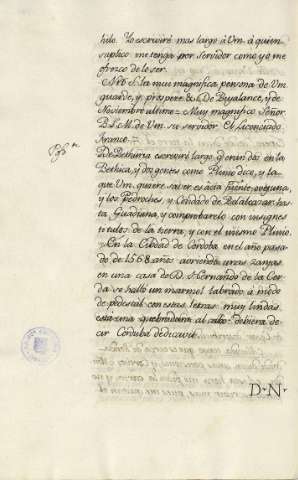 hilo. Yo escreviré mas largo à Vm. à quien
suplico me tenga por Servidor como yo me
ofrezco de lo ser.
N.r̃o S.r la muy magnifica persona de Vm.
guarde, y prospere &c. De Bujalance, y de
Noviembre ultimo = Muy magnifico Señor
B. L. M. de Vm. su servidor El Licenciado
Franco.
De Bethuria escreviré largo
Bethica, y dos gentes como Plinio dice, y la
que Vm. quiere saber es acia fuente ovejuna,
y los Pedroches, y Condado de Belalcazar has
ta, Guadiana, y comprobarelo con insignes
titulos de la tierra, y con el mismo Plinio.
En la Ciudad de Cordoba en el año pasa
do de 1568. años abriendo unas zanjas
en una casa de D. Hernando de la Cer
da se halló un marmol labrado à modo
de pedestal con estas letras muy lindas
está una quebradura al cabo deviera de
cir Corduba dedicavit.
D · N ·